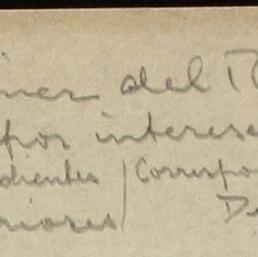 iner del R
por interese
dientes / Correspo
riores / De